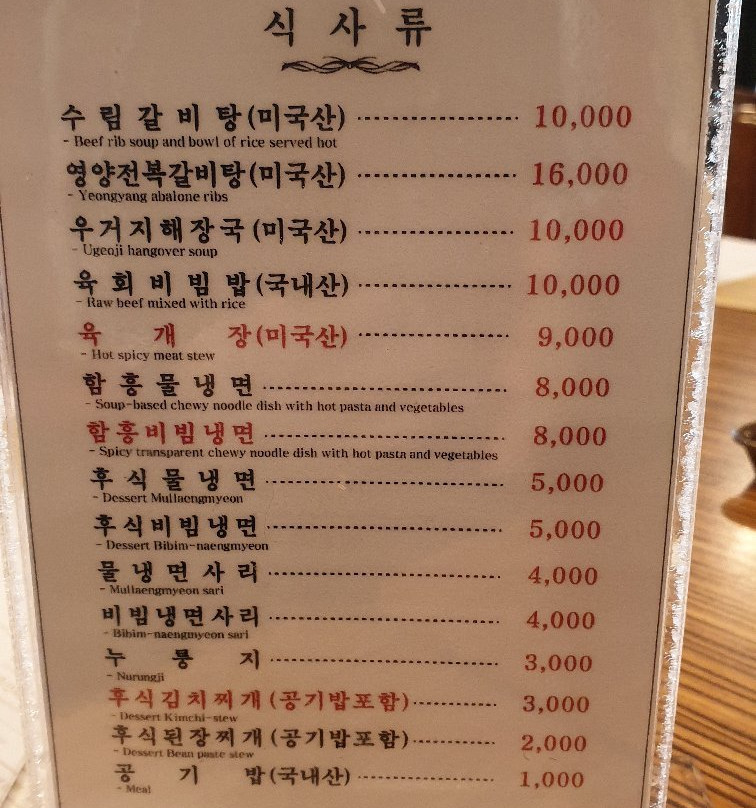 식 사 류
수 림 갈 비 탕(미국산) 10,000
- Beef rib soup and bowl of rice served hot
영양전복갈비탕(미국산) 16,000
- Yeongyang abalone ribs
우거지해장국(미국산) 10,000
- Ugeoji hangover soup
육 회 비 빔 밥(국내산) 10,000
- Raw beef mixed with rice
육 개 장(미국산) 9,000
- Hot spicy meat stew
함 흥 물 냉 면 8,000
- Soup-based chewy noodle dish with hot pasta and vegetables
함흥비빔냉면 8,000
- Spicy transparent chewy noodle dish with hot pasta and vegetables
후 식 물 냉 면 5,000
- Dessert Mullaengmyeon
후식비빔냉면 5,000
- Dessert Bibim-naengmyeon
물 냉 면 사 리 4,000
- Mullaengmyeon sari
비빔냉면사리 4,000
- Bibim-naengmyeon sari
누 룽 지 3,000
- Nurungji
후식김치찌개(공기밥포함) 3,000
- Dessert Kimchi-stew
후식된장찌개(공기밥포함) 2,000
- Dessert Bean paste stew
공 기 밥(국내산) 1,000
- Meal